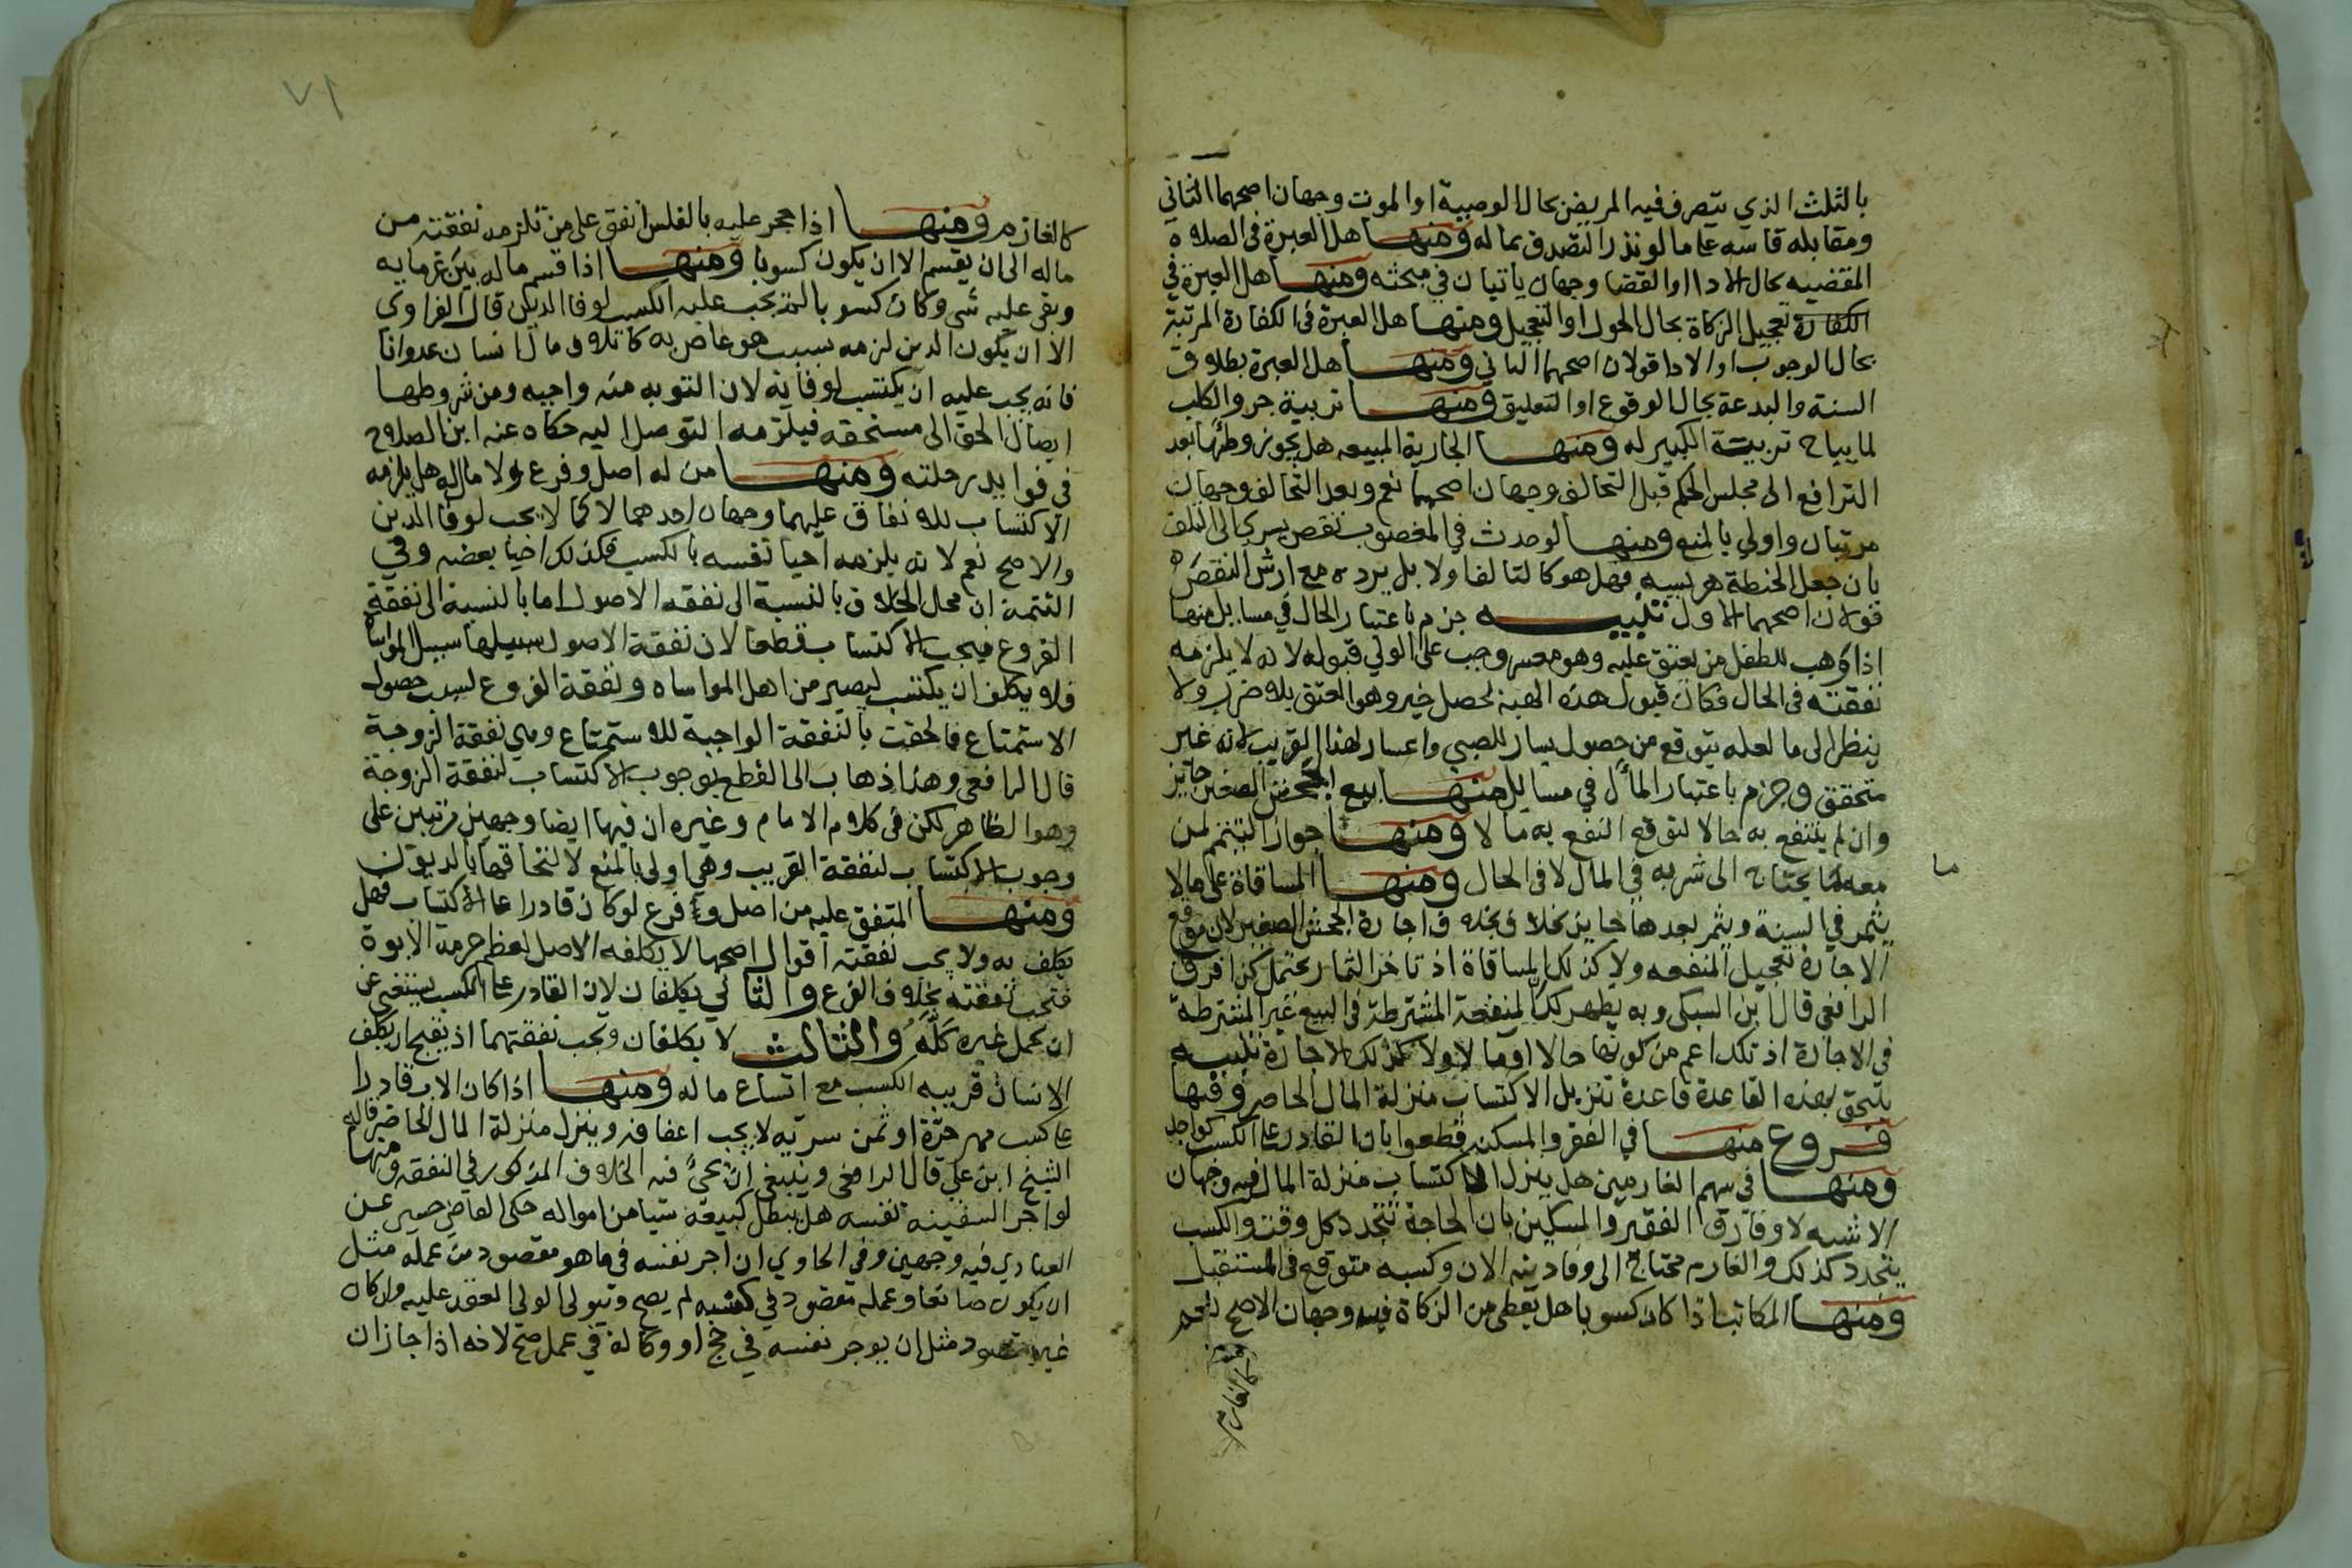 بالثلث الذي يتصرف فيه المريض بحال الوصية او الموت وجهان اصحهما الثاني
ومقابله قاسه علي ما لو نذر التصدق بماله ومنها هل العبرة في الصلاة
المقضيه بحال الادا او القضا وجهان ياتيان في مبحثه ومنها هل العبرة في
الكفارة تعجيل الزكاة بحال الحول او التعجيل ومنها هل العبرة في الكفارة المرتبة
بحال الوجوب او الادا قولان اصحهما الثاني ومنها هل العبرة بطلاق
السنة والبدعة بحال الوقوع او التعليق ومنها تربية جرو الكلب
لما يباح تربية الكبير له ومنها الجارية المبيعه هل يجوز وطؤها بعد
الترافع الى مجلس الحكم قبل التحالف وجهان اصحهما نعم وبعد التحالف وجهان
مرتبان واولي بالمنع ومنها لو حدث في المغصوب نقص يسري الى التلف
بان جعل الحنطة هريسه فهل هو كالتالف او لا بل يرده مع ارش النقص
قولان اصحهما الاول تنبيه جزم باعتبار الحال في مسايل منها
اذا وهب للطفل من يعتق عليه وهو معسر وجب على الولي قبوله لانه لا يلزمه
نفقته في الحال فكان قبول هذه الهبة تحصل خير وهو العتق بلا ضرر ولا
ينظر الى ما لعله يتوقع من حصول يسار للصبي واعسار لهذا القريب لانه غير
متحقق وجزم باعتبار المآل في مسايل منها بيع الجحش الصغير جايز
وان لم ينتفع به حالا لتوقع النفع به مآلا ومنها جواز التيمم لمن
معه ما يحتاج الى شربه في المآل لا في الحال ومنها المساقاة على ما لا
يثمر في السنة ويثمر بعدها جايز بخلاف اجارة الجحش الصغير لان موضع
الاجارة تعجيل المنفعه ولا كذلك المساقاة اذ تاخر الثمار يحتمل كذا فرق
الرافعي قال ابن السبكي وبه يظهر لك المنفعة المشترطة في البيع غير المشترطة
في الاجارة اذ تلك اعم من كونها حالا او مآلا ولا كذلك الاجارة تنبيه
يلتحق بهذه القاعدة قاعدة تنزيل الاكتساب منزلة المال الحاضر وفيها
فروع منها في الفقر والمسكنه قطعوا بان القادر على الكسب كواجد
ومنها في سهم الغارمين هل ينزل الاكتساب منزلة المال فيه وجهان
الاشبه لا وفارق الفقير والمسكين بان الحاجة تتجدد كل وقت والكسب
يتجدد كذلك والغارم محتاج الى وفا دينه الان وكسبه متوقع في المستقبل
ومنها المكاتب اذا كان كسوبا هل يعطى من الزكاة فيه وجهان الاصح نعم
كالغارم
ما
٧١
كالغازم ومنها اذا حجر عليه بالفلس انفق على من تلزمه نفقته من
ماله الى ان يقسم الا ان يكون كسوبا ومنها اذا قسم ماله بين غرمايه
وبقى عليه شي وكان كسوبا لم يجب عليه الكسب لوفا الدين قال الفراوى
الا ان يكون الدين لزمه بسبب هو عاص به كاتلاف مال انسان عدوانا
فانه يجب عليه ان يكتسب لوفايه لان التوبه منه واجبه ومن شروطها
ايصال الحق الى مستحقه فيلزمه التوصل اليه حكاه عنه ابن الصلاح
في فوايد رحلته ومنها من له اصل وفرع ولا مال له هل يلزمه
الاكتساب للانفاق عليهما وجهان احدهما لا كما لا يجب لوفا الدين
والاصح نعم لانه يلزمه احيا نفسه بالكسب فكذلك احيا بعضه وفي
التتمة ان محل الخلاف بالنسبة الى نفقه الاصول اما بالنسبة الى نفقة
الفروع فيجب الاكتساب قطعا لان نفقة الاصول سبيلها سبيل المواساة
فلا يكلف ان يكتسب ليصير من اهل المواساه ونفقة الفروع لسبب حصول
الاستمتاع فالحقت بالنفقة الواجبة للاستمتاع وهي نفقة الزوجة
قال الرافعي وهذا ذهاب الى القطع بوجوب الاكتساب لنفقة الزوجة
وهو الظاهر لكن في كلام الامام وغيره ان فيها ايضا وجهين مرتبين على
وجوب الاكتساب لنفقة القريب وهي اولى بالمنع لالتحاقها بالديون
ومنها المتفق عليه من اصل وفرع لو كان قادرا على الاكتساب فهل
يكلف به ولا يجب نفقته اقوال اصحها لا يكلفه الاصل لعظم حرمة الابوة
فتجب نفقته بخلاف الفرع والثاني يكلفان لان القادر على الكسب يستغني عن
ان يحمل غيره كله والثالث لا يكلفان ويجب نفقتهما اذ يقبح ان يكلف
الانسان قريبه الكسب مع اتساع ماله ومنها اذا كان الاب قادرا
على كسب مهر حرة او ثمن سرية لا يجب اعفافه وينزل منزلة المال الحاضر قاله
الشيخ ابن علي قال الرافعي وينبغي ان يجي فيه الخلاف المذكور في النفقه ومنها
لو اجر السفيه نفسه هل يبطل كبيعه شيا من امواله حكى القاضي حسين عن
العبادي فيه وجهين وفي الحاوي ان اجر نفسه فيما هو مقصود من عمله مثل
ان يكون صانعا وعمله مقصود في كسبه لم يصح ويتولى الولي العقد عليه وان كان
غير مقصود مثل ان يوجر نفسه في حج او وكالة في عمل صح لانه اذا جاز ان